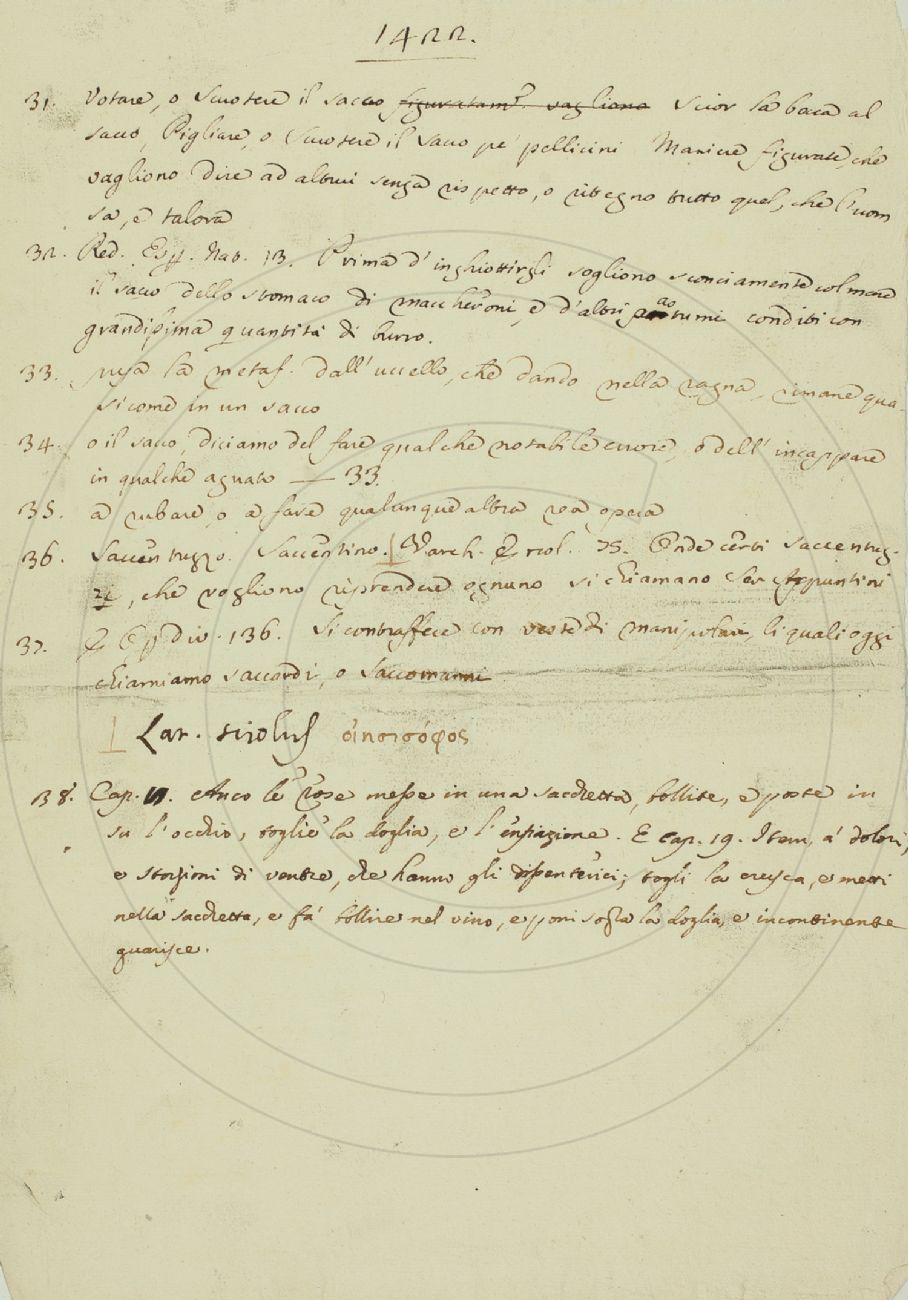 1422.
31. Votare, o Scuotere il sacco figuratam.e vagliono Scior la bocca al
sacco, Pigliare, o Scuotere il sacco pe' pellicini Maniere figurate, che
vagliono Dire ad altrui senza rispetto, o ritegno tutto quel, che l'uom
sa, e talora
32. Red. Esp. Nat. 13. Prima d'inghiottirgli sogliono sconciamente colmare
il sacco dello stomaco di maccheroni, e d'altri pastumi conditi con
grandissima quantità di burro.
33. presa la metaf. dall'uccello, che dando nella ragna, rimane qua-
si come in un sacco
34. o il sacco, diciamo del fare qualche notabile errore, o dell'incappare
in qualche aguato — 33.
35. a rubare, o a fare qualunque altra rea opera
36. Saccentuzzo. Saccentino. Varch. Ercol. 75. Onde certi saccentuz-
zi, che vogliono riprendere ognuno si chiamano Ser Appuntini
37. E Op. div. 136. Si contraffece con veste di manipolari, li quali oggi
chiamiamo saccardi, o Saccomanni
Lat. sciolus οἰησίσοφος
138. Cap. 17. Anco le rose messe in una sacchetta, bollite, e poste in
su l'occhio, toglie la doglia, e l'enfiazione. E cap. 19. Item, a' dolori,
e storsioni di ventre, che hanno gli dissenterici; togli la crusca, e metti
nella sacchetta, e fa' bollire nel vino, e poni sopra la doglia, e incontinente
guarisce.